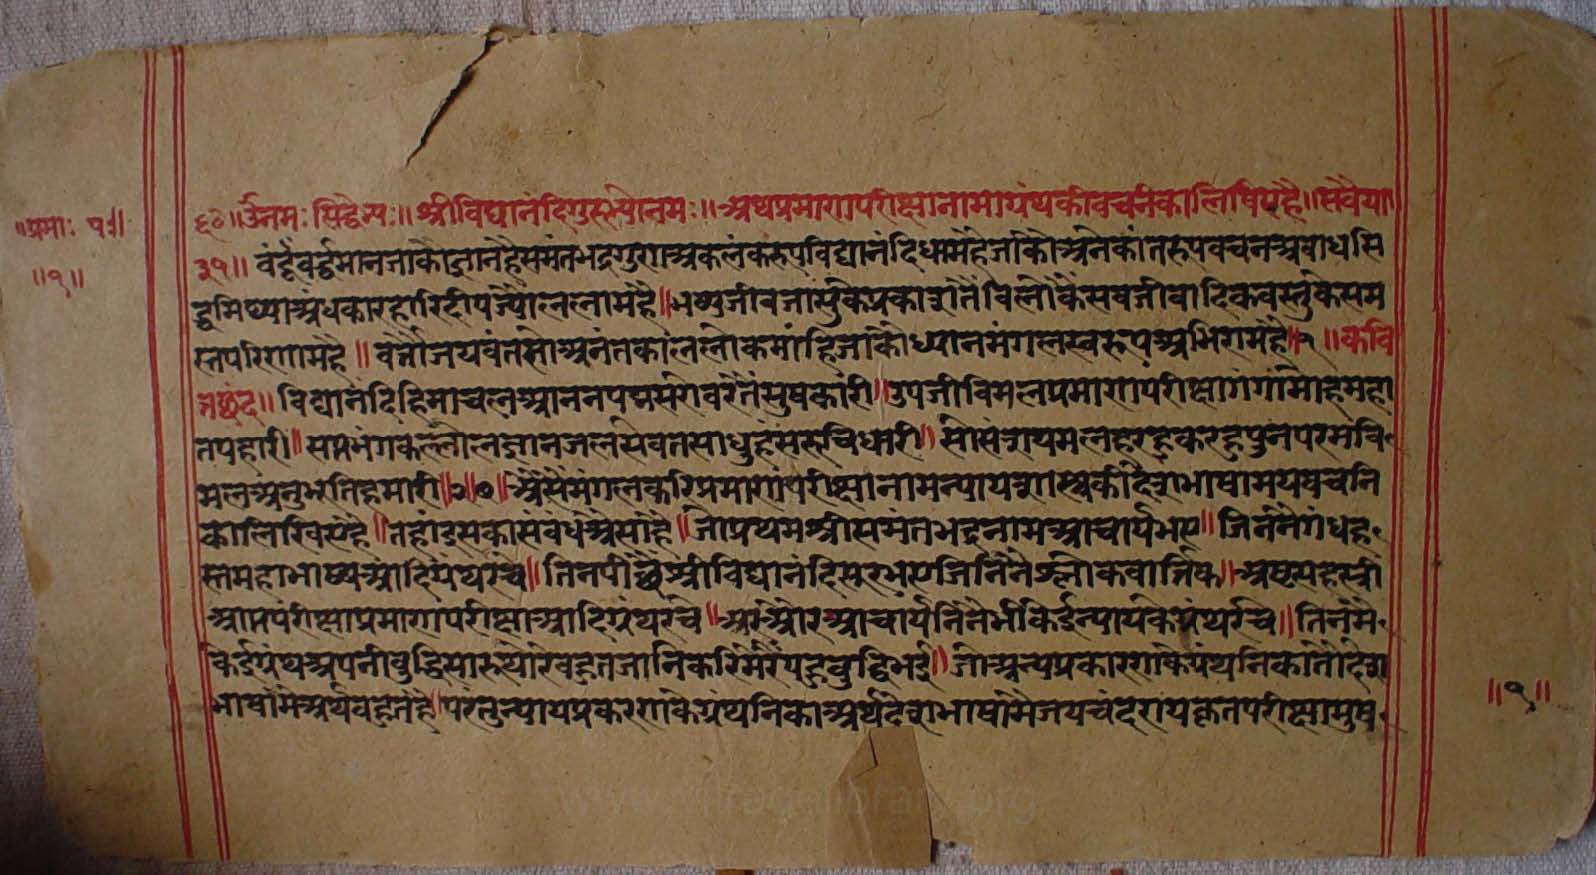 ॥प्रमाः प॰॥
॥१॥
६०॥ ॐनमः सिद्धेभ्यः॥ श्रीविद्यानंदिगुरुभ्योनमः॥ अथप्रमाणपरीक्षानामाग्रंथकीवचनिकालिषिएहै॥ सवैया
३१॥ वंदूंवर्द्धमानजाकौज्ञानहैसमंतभद्रगुणअकलंकरूपविद्यानंदिधामहैजाकौअनेकांतरूपवचनअबाधसि
द्धमिथ्याअंधकारहारिदीपज्यौंललामहै॥ भव्यजीवजासुकेप्रकाशतैंविलोकैसबजीवादिकवस्तुकेसम
स्तपरिणामहै॥ वर्त्तौजयवंतसोअनंतकाललोकमांहिजाकौध्यानमंगलस्वरूपअभिरामहै॥१॥ कवि
त्तछंद॥ विद्यानंदिहिमाचलआननपद्मसरोवरतैंसुषकारी॥ उपजीविमलप्रमाणपरीक्षागंगामोहमहा
तपहारी॥ सप्तभंगकल्लोलज्ञानजलसेवतसाधुहंसरुचिधारी॥ सोसंशयमलहरहुकरहुपुनपरमवि
मलअनुभूतिहमारी॥२॥०॥ अैसैंमंगलकरिप्रमाणपरीक्षानामन्यायशास्त्रकीदेशभाषामयवचनि
कालिखिएहै॥ तहांइसकासंबंधअैसाहै॥ जोप्रथमश्रीसमंतभद्रनामआचार्यभए॥ जिननैंगंधह
स्तमहाभाष्यआदिग्रंथरचे॥ तिनपीछैंश्रीविद्यानंदिसूरभएजिनिनैंश्लोकवार्त्तिक॥ अष्टसहस्त्री
आप्तपरीक्षाप्रमाणपरीक्षाआदिग्रंथरचे॥ अरुऔरआचार्यनिनैंभीकेईन्यायकेग्रंथरचे॥ तिनमैं
केईग्रंथअपनीबुद्धिसारूथोरेबहुतजानिकरिमेरैंयहुबुद्धिभई॥ जोअन्यप्रकारणकेग्रंथनिकातौदेश
भाषामैंअर्थबहुतहै॥ परंतुन्यायप्रकरणकेग्रंथनिकाअर्थदेशभाषामैंजयचंदरायकृतपरीक्षामुष
॥१॥